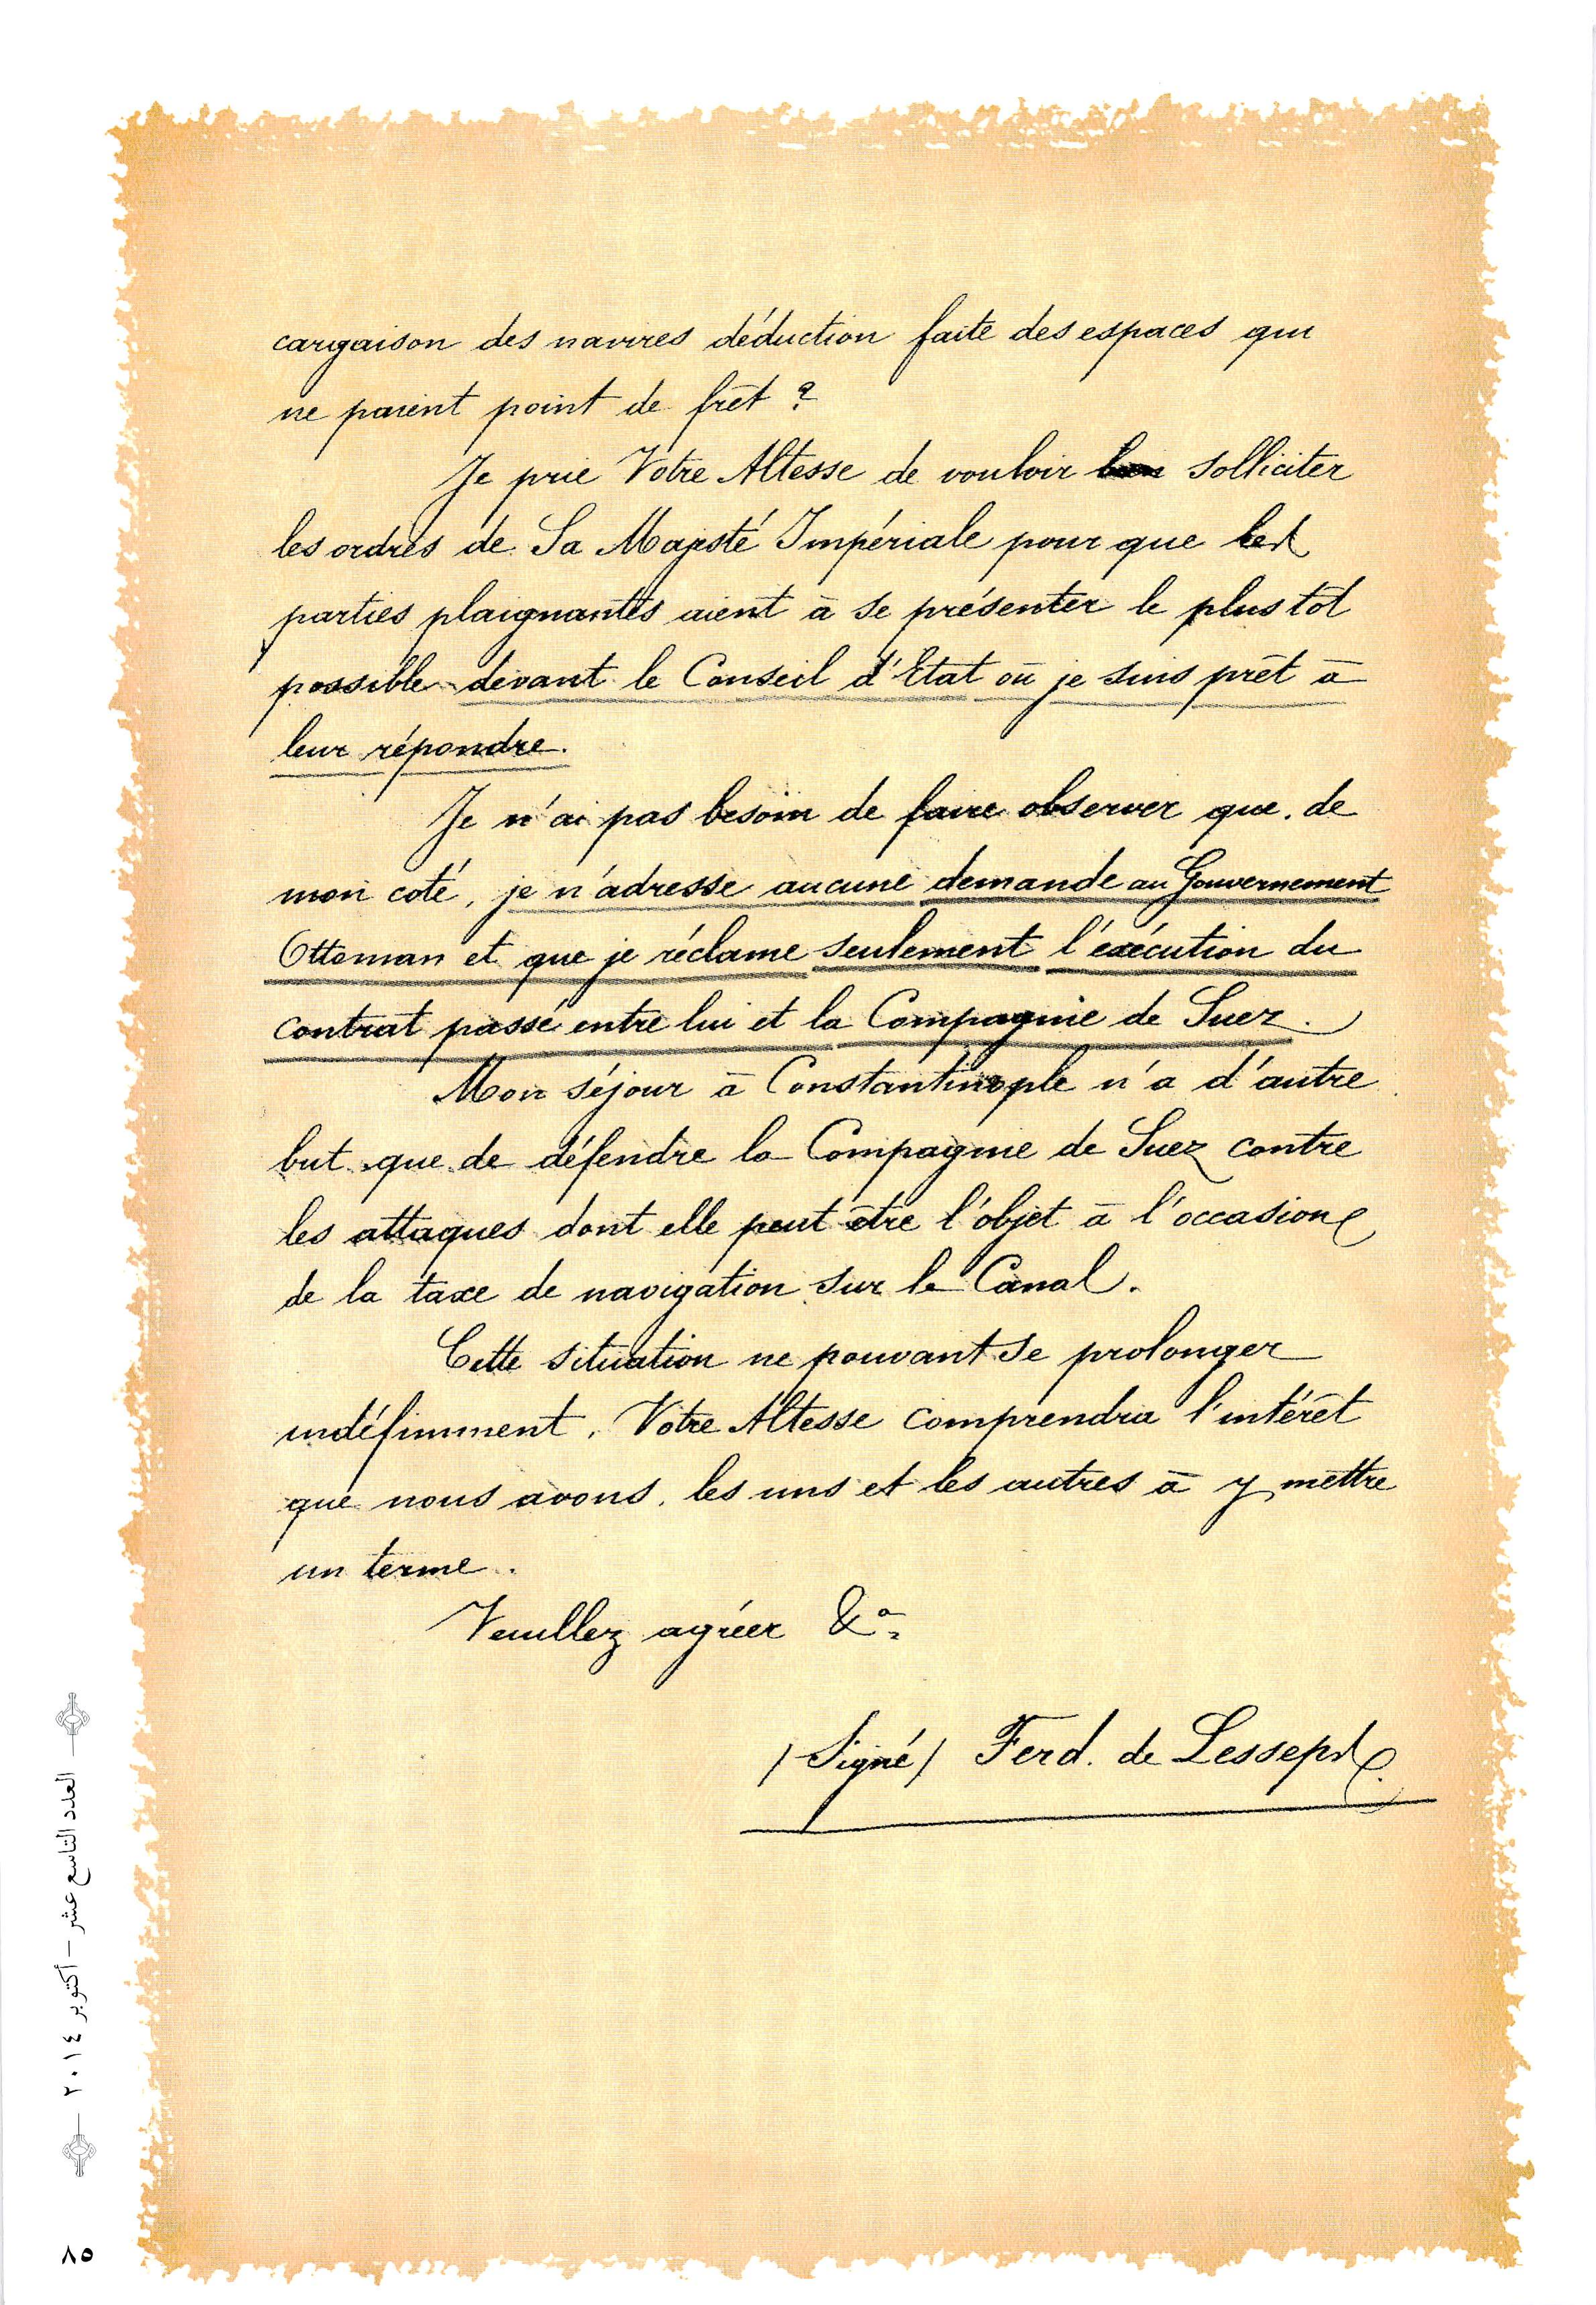 cargaison des navires déduction faite des espaces qui
ne paient point de frêt ?
Je prie Votre Altesse de vouloir solliciter
les ordres de Sa Majesté Impériale pour que les
parties plaignantes aient à se présenter le plus tôt
possible devant le Conseil d'Etat où je suis prêt à
leur répondre.
Je n'ai pas besoin de faire observer que, de
mon coté, je n'adresse aucune demande au Gouvernement
Ottoman et que je réclame seulement l'exécution du
contrat passé entre lui et la Compagnie de Suez.
Mon séjour à Constantinople n'a d'autre
but que de défendre la Compagnie de Suez contre
les attaques dont elle peut être l'objet à l'occasion
de la taxe de navigation sur le Canal.
Cette situation ne pouvant se prolonger
indéfiniment, Votre Altesse comprendra l'intérêt
que nous avons, les uns et les autres à y mettre
un terme.
Veuillez agréer &a
/Signé/ Ferd. de Lesseps
العدد التاسع عشر – أكتوبر ٢٠١٤
٨٥